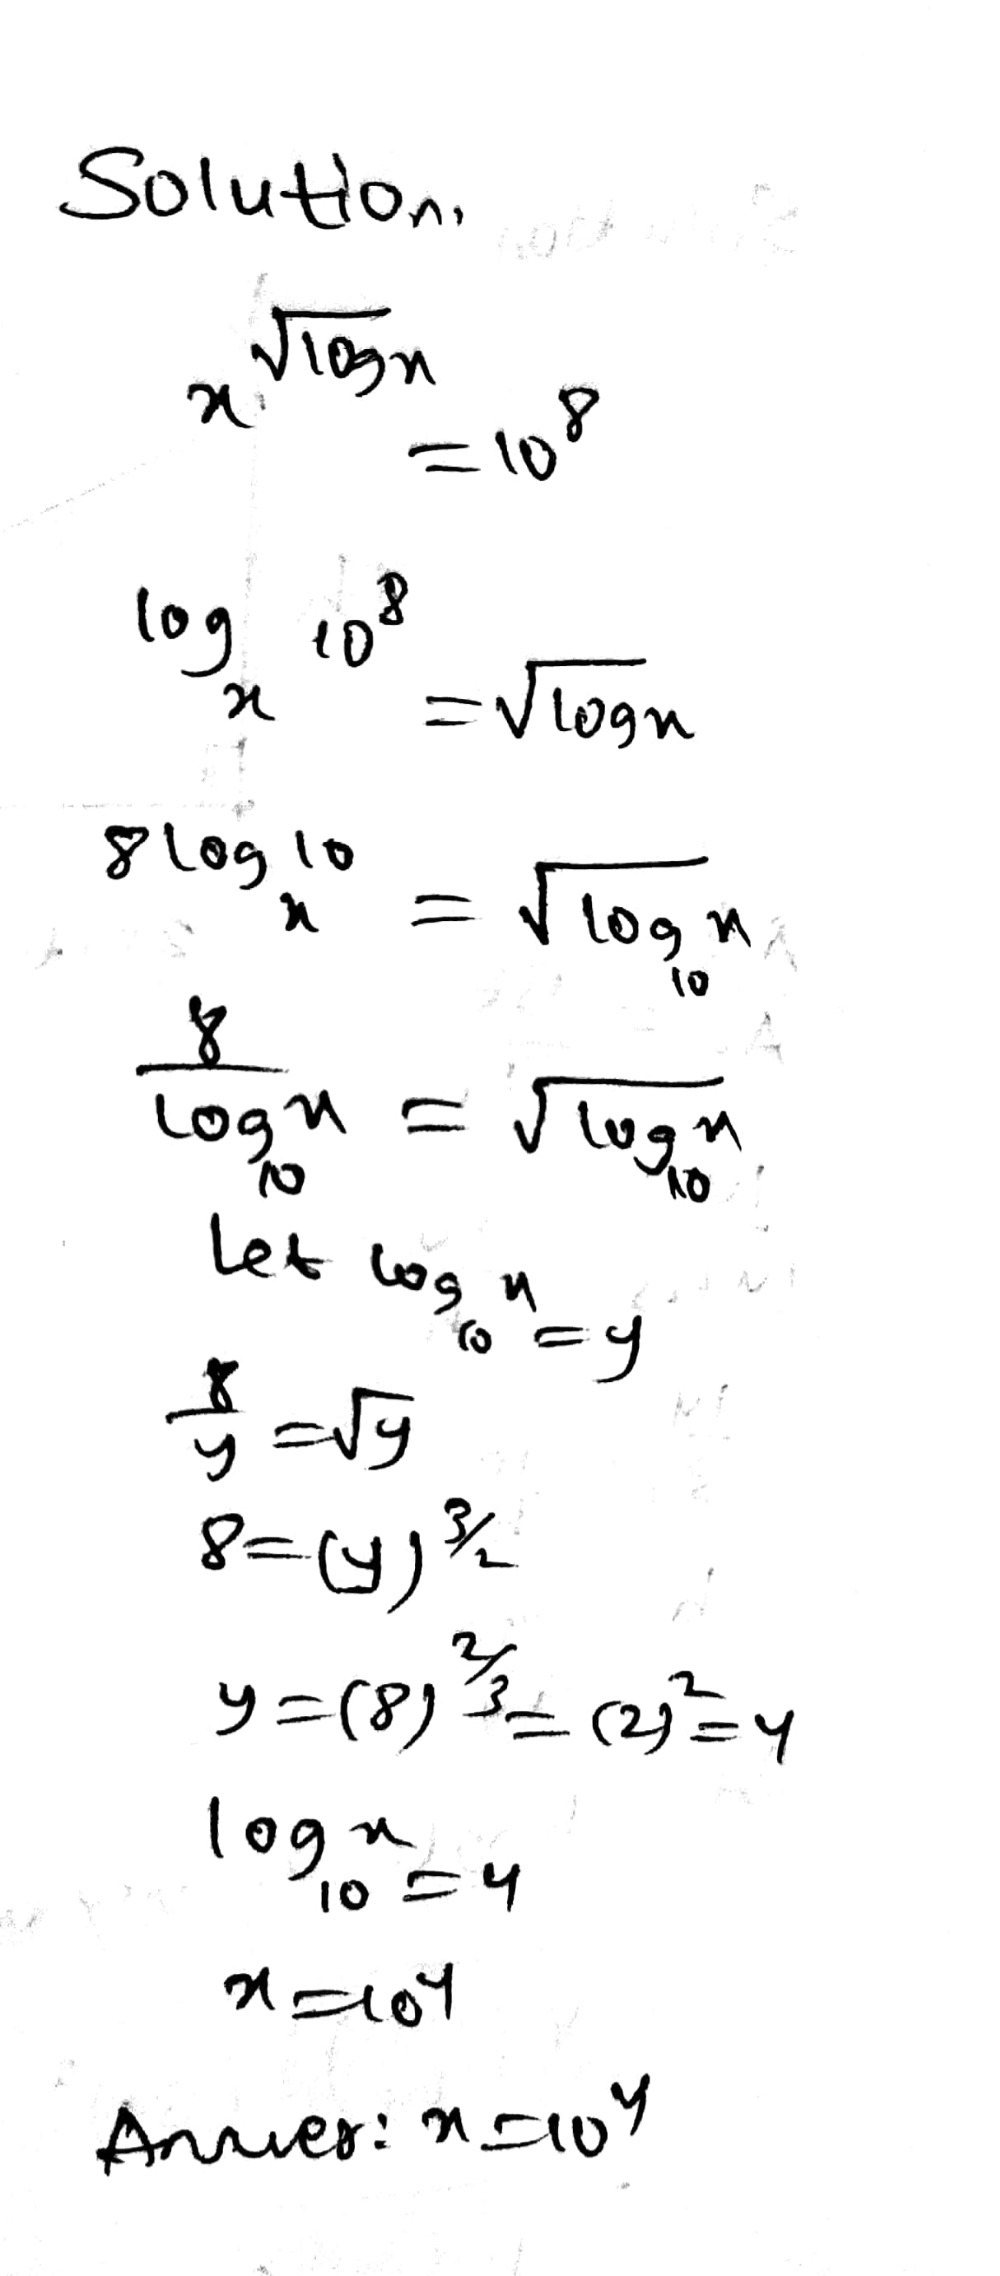 Solution,
x^√logx = 10^8
log_x 10^8 = √logx
8 log_x 10 = √log_10 x
8/log_10 x = √log_10 x
Let log_10 x = y
8/y = √y
8 = (y)^3/2
y = (8)^2/3 = (2)^2 = 4
log_10 x = 4
x = 10^4
Answer: x = 10^4